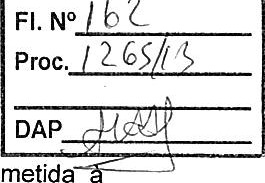 Fl. Nº 162
Proc. 1265/13
DAP
metida à